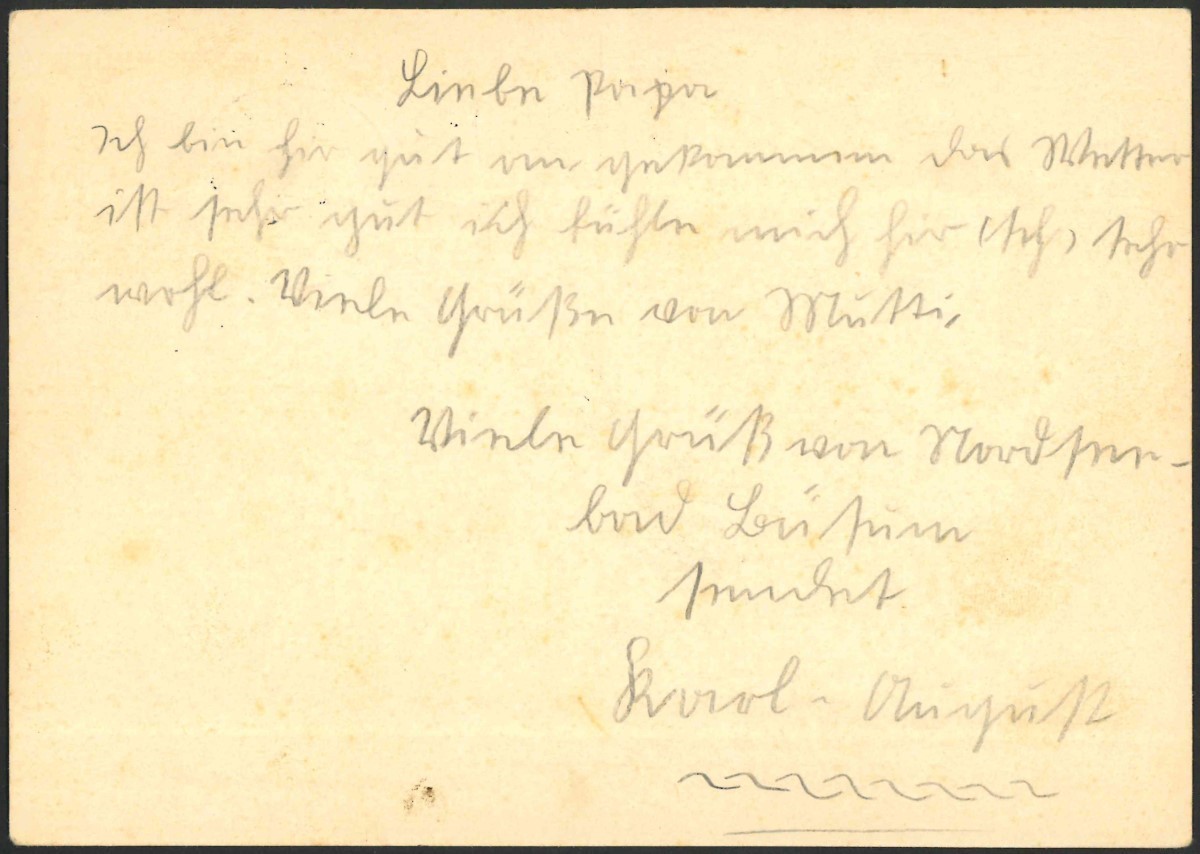 Liebe Papa
Ich bin hir gut an gekommen das Wetter
ist sehr gut ich fühle mich hir (sch) sehr
wohl. Viele Grüße von Mutti.
Viele Grüß von Nordsee-
bad Büsum
sendet
Karl-August